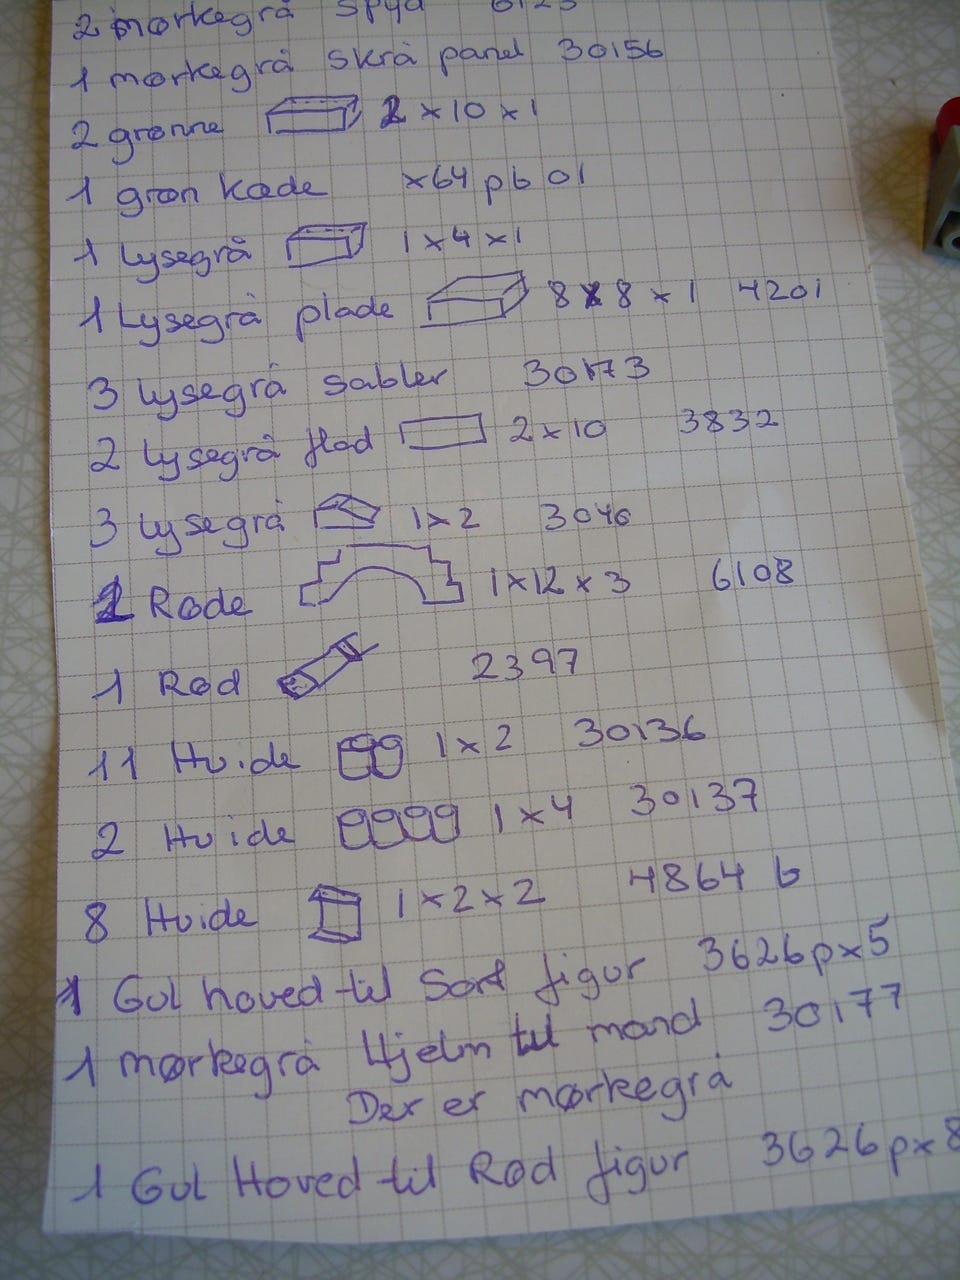 2 mørkegrå spyd 6123
1 mørkegrå skrå panel 30156
2 grønne 2 x 10 x 1
1 grøn kåde x64 pb 01
1 Lysegrå 1 x 4 x 1
1 Lysegrå plade 8 x 8 x 1 4201
3 Lysegrå sabler 30173
2 Lysegrå flad 2 x 10 3832
3 Lysegrå 1 x 2 3046
Røde 1 x 12 x 3 6108
1 Rød 2397
11 Hvide 1 x 2 30136
2 Hvide 1 x 4 30137
8 Hvide 1 x 2 x 2 4864 b
1 Gul hoved til Sort figur 3626px5
1 mørkegrå Hjelm til mand 30177
Der er mørkegrå
1 Gul Hoved til Rød figur 3626px8